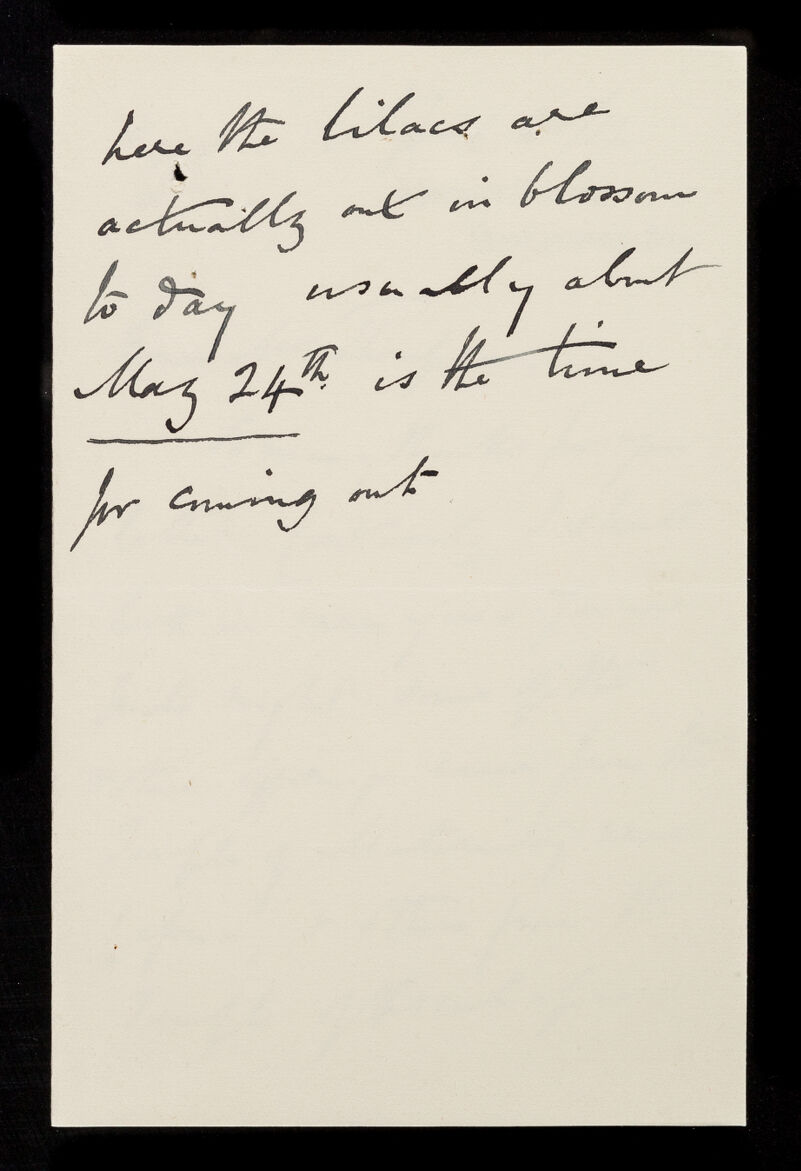 here the lilacs are
actually out in blossom
to day usually about
May 24th. is the time
for coming out